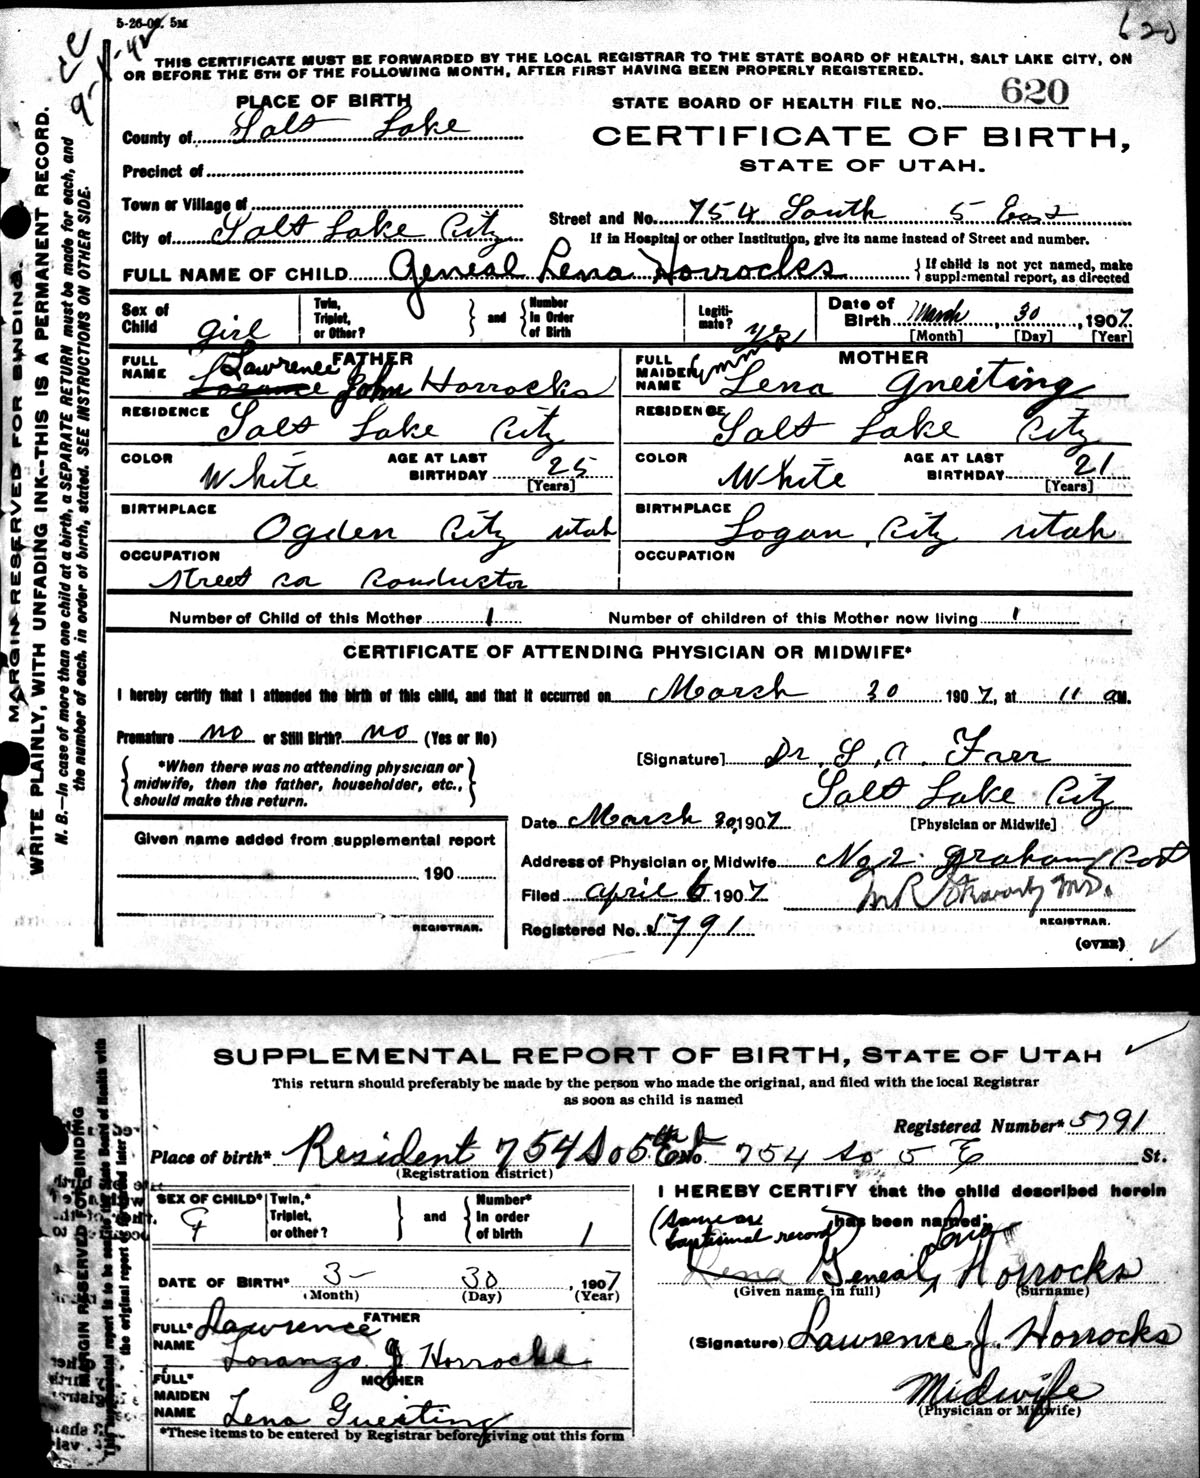 5-26-06. 5M
620
CC
9-1-42
THIS CERTIFICATE MUST BE FORWARDED BY THE LOCAL REGISTRAR TO THE STATE BOARD OF HEALTH, SALT LAKE CITY, ON
OR BEFORE THE 5TH OF THE FOLLOWING MONTH, AFTER FIRST HAVING BEEN PROPERLY REGISTERED.
MARGIN RESERVED FOR BINDING.
WRITE PLAINLY, WITH UNFADING INK—THIS IS A PERMANENT RECORD.
N. B.—In case of more than one child at a birth, a SEPARATE RETURN must be made for each, and
the number of each, in order of birth, stated. SEE INSTRUCTIONS ON OTHER SIDE.
PLACE OF BIRTH
STATE BOARD OF HEALTH FILE NO. 620
County of Salt Lake
CERTIFICATE OF BIRTH,
STATE OF UTAH.
Precinct of
Town or Village of
Street and No. 754 South 5 East
City of Salt Lake City
If in Hospital or other Institution, give its name instead of Street and number.
FULL NAME OF CHILD Geneal Lena Horrocks
If child is not yet named, make
supplemental report, as directed
Sex of Child girl
Twin, Triplet, or Other? and Number In Order of Birth
Legiti-mate? yes
Date of Birth March 30, 1907
[Month] [Day] [Year]
FULL NAME FATHER Lawrence John Horrocks
FULL MAIDEN NAME MOTHER Emma Lena Gneiting
RESIDENCE Salt Lake City
RESIDENCE Salt Lake City
COLOR White AGE AT LAST BIRTHDAY 25 [Years]
COLOR White AGE AT LAST BIRTHDAY 21 [Years]
BIRTHPLACE Ogden City Utah
BIRTHPLACE Logan, City Utah
OCCUPATION Street car Conductor
OCCUPATION
Number of Child of this Mother 1
Number of children of this Mother now living 1
CERTIFICATE OF ATTENDING PHYSICIAN OR MIDWIFE*
I hereby certify that I attended the birth of this child, and that it occurred on March 30 1907, at 11 a M.
Premature no or Still Birth? no (Yes or No)
*When there was no attending physician or
midwife, then the father, householder, etc.,
should make this return.
[Signature] Dr. S. A.
Salt Lake City
[Physician or Midwife]
Date March 30, 1907
Given name added from supplemental report
190
REGISTRAR.
Address of Physician or Midwife No 2. Graham Cort
Filed April 6 1907
M R M.D.
REGISTRAR.
Registered No. 5791
(OVER)
SUPPLEMENTAL REPORT OF BIRTH, STATE OF UTAH
This return should preferably be made by the person who made the original, and filed with the local Registrar
as soon as child is named
MARGIN RESERVED FOR BINDING
Registered Number* 5791
Place of birth* Resident 754 So 5th E No. 754 So 5 E St.
(Registration district)
SEX OF CHILD*
Twin,* Triplet, or other? and Number* in order of birth 1
I HEREBY CERTIFY that the child described herein
has been named:
(same as baptismal record)
Lena
Lena Geneal, Horrocks
(Given name in full) (Surname)
DATE OF BIRTH* 3- 30, 1907
(Month) (Day) (Year)
FATHER
FULL* NAME Lawrence
Loranzo J Horrocks
(Signature) Lawrence J. Horrocks
Midwife
(Physician or Midwife)
MOTHER
FULL* MAIDEN NAME Lena Gueiting
*These items to be entered by Registrar before giving out this form